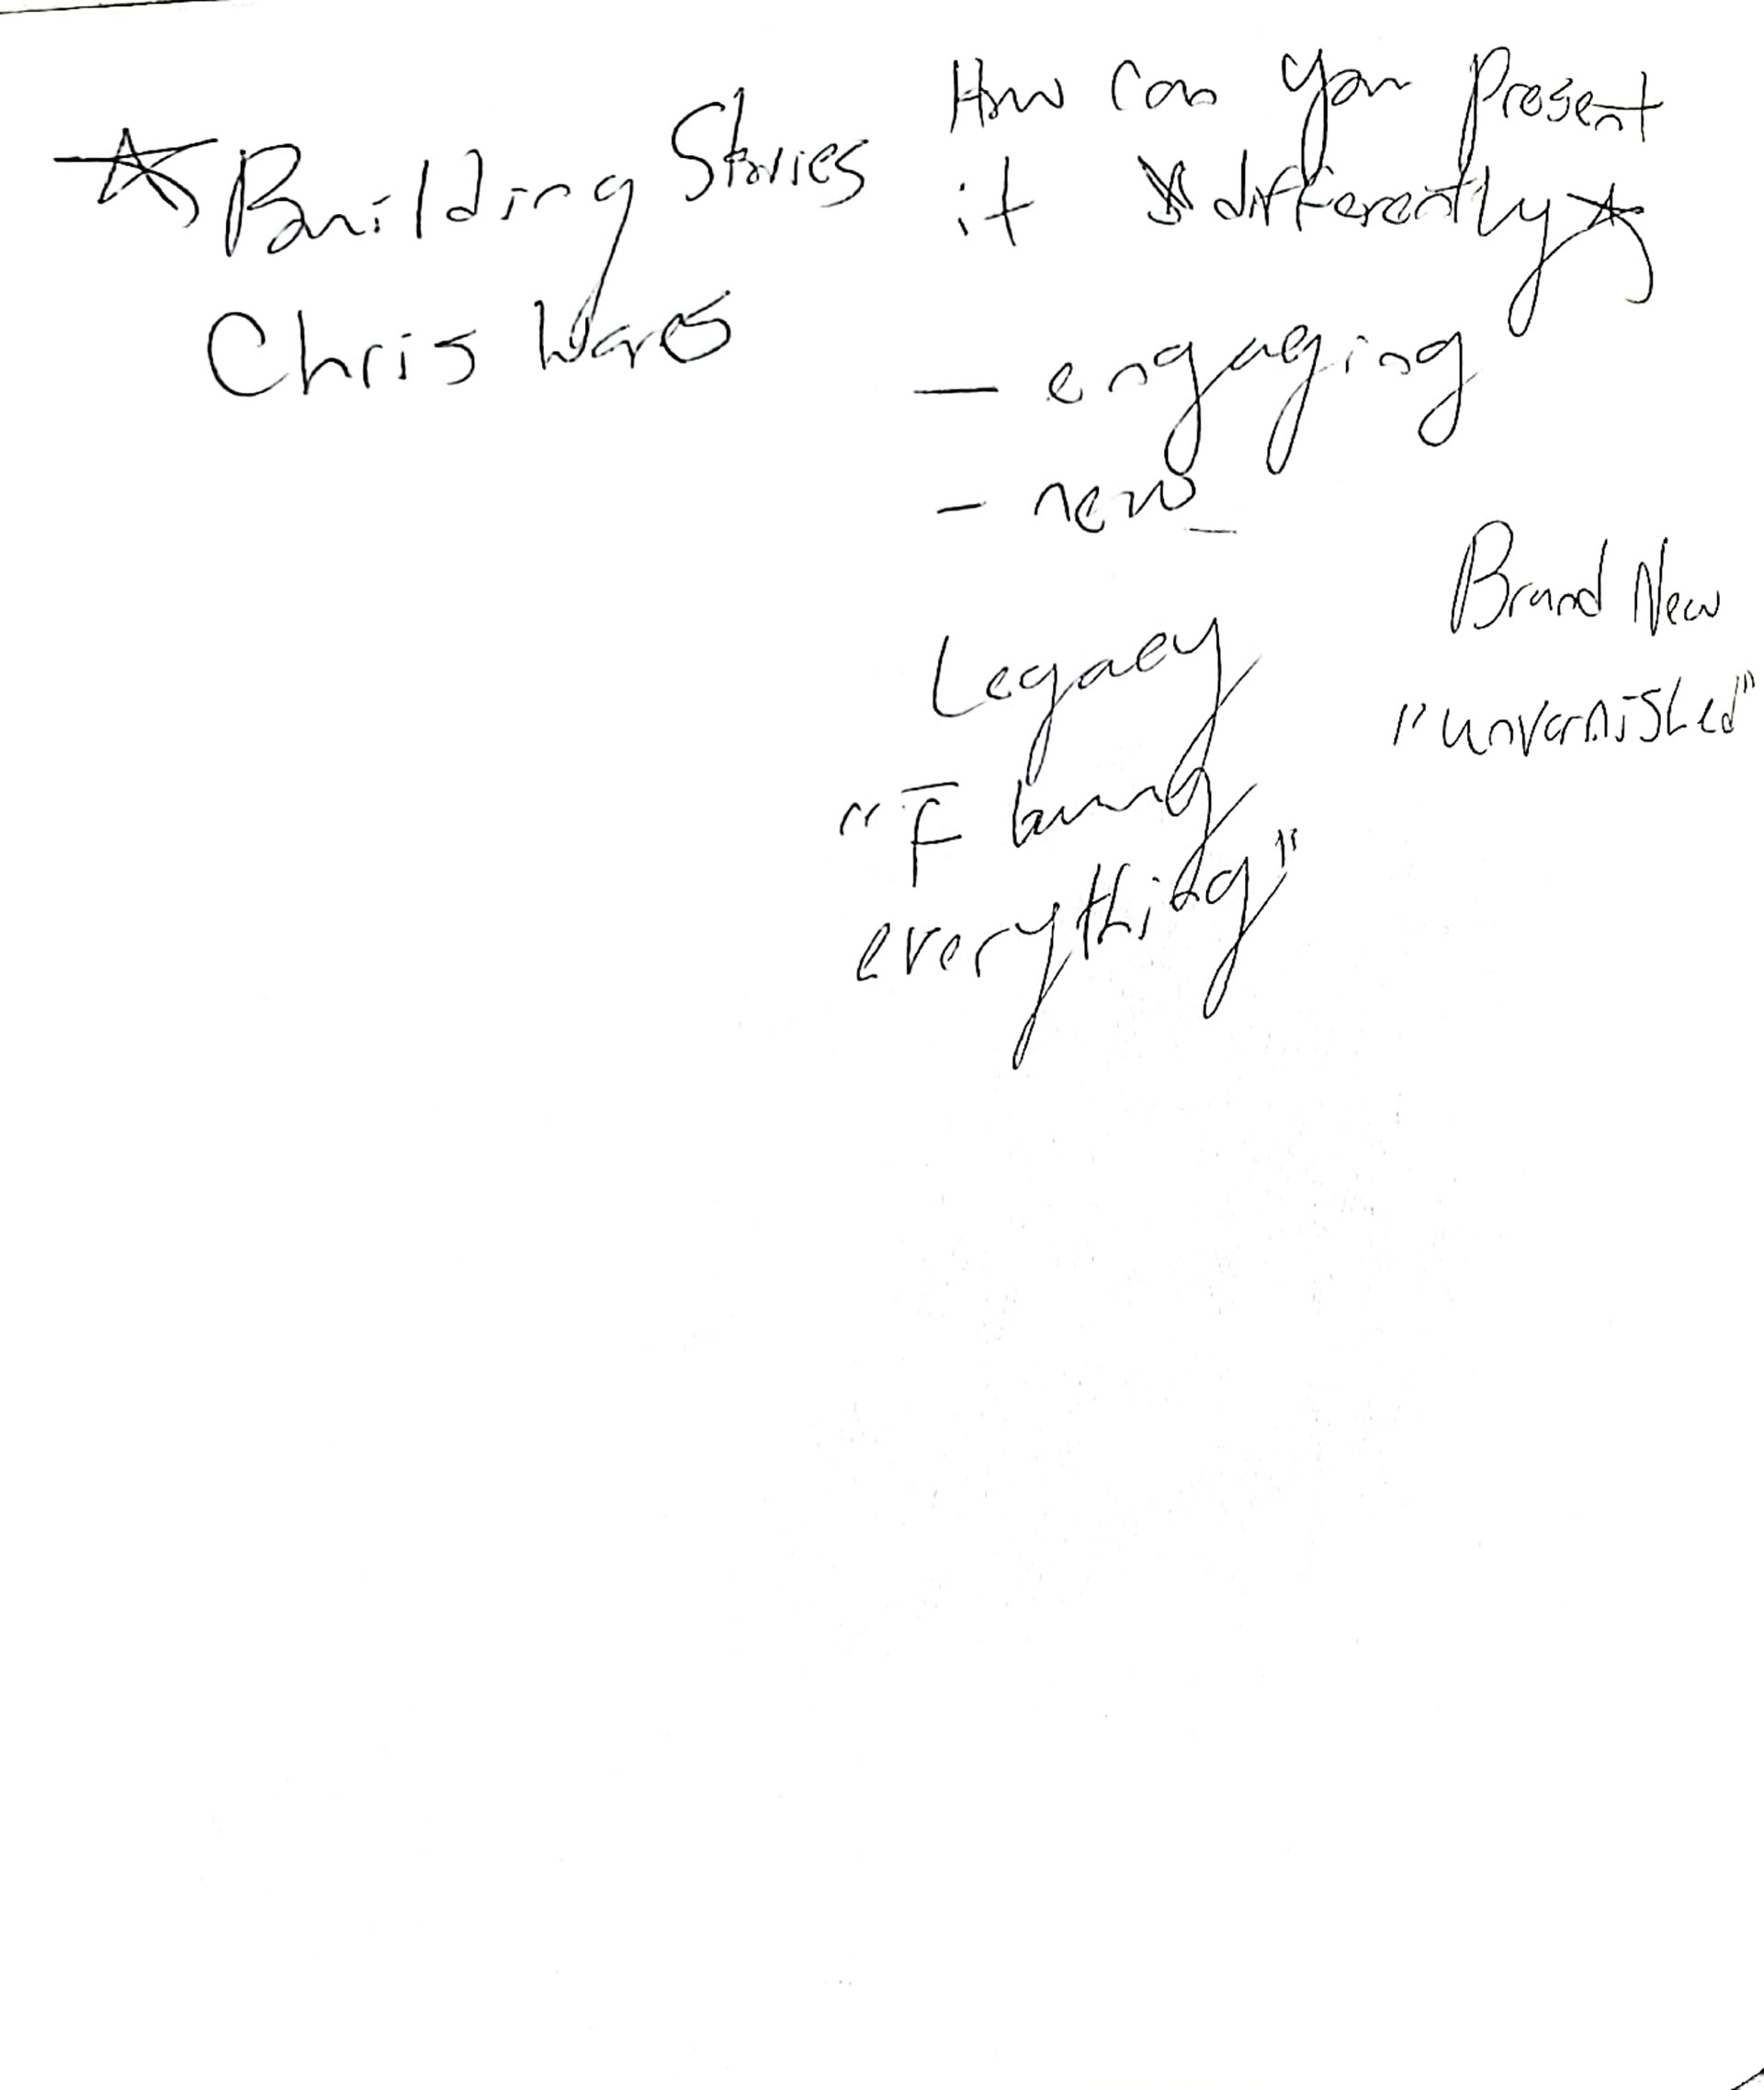 ☆ Building Stories
Chris Ware
How can you present
it differently ☆
— engaging
- new
Brand New
"unvarnished"
Legacy
"F
everything"